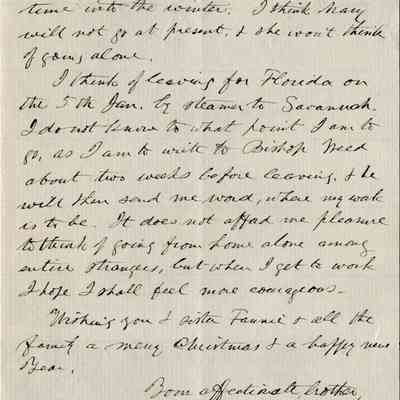 time into the winter. I think Mary
will not go at present, & she won't think
of going alone.
I think of leaving for Florida on
the 5th Jan. by steamer to Savannah.
I do not know to what point I am to
go, as I am to write to Bishop Weed
about two weeks before leaving, & he
will then send me word, where my work
is to be. It does not afford me pleasure
to think of going from home alone among
entire strangers, but when I get to work
I hope I shall feel more courageous.
Wishing you & sister Fannie & all the
family a merry Christmas & a happy new
Year.
Your affectionate brother,